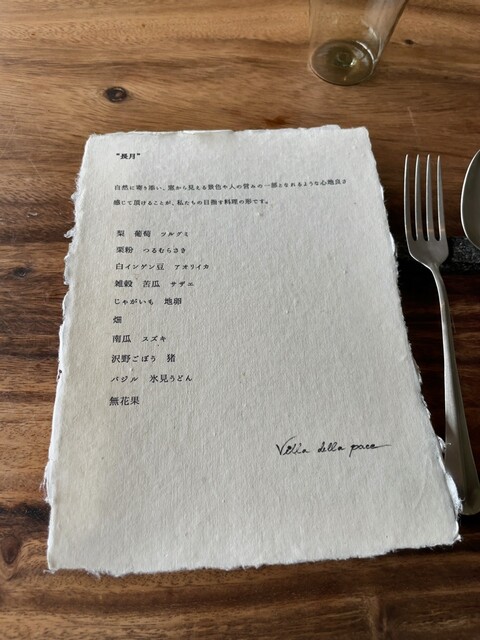 "長月"
自然に寄り添い、窓から見える景色や人の営みの一部となれるような心地良さ
感じて頂けることが、私たちの目指す料理の形です。
梨 葡萄 ツルグミ
栗粉 つるむらさき
白インゲン豆 アオリイカ
雑穀 苦瓜 サザエ
じゃがいも 地卵
畑
南瓜 スズキ
沢野ごぼう 猪
バジル 氷見うどん
無花果
Villa della pace